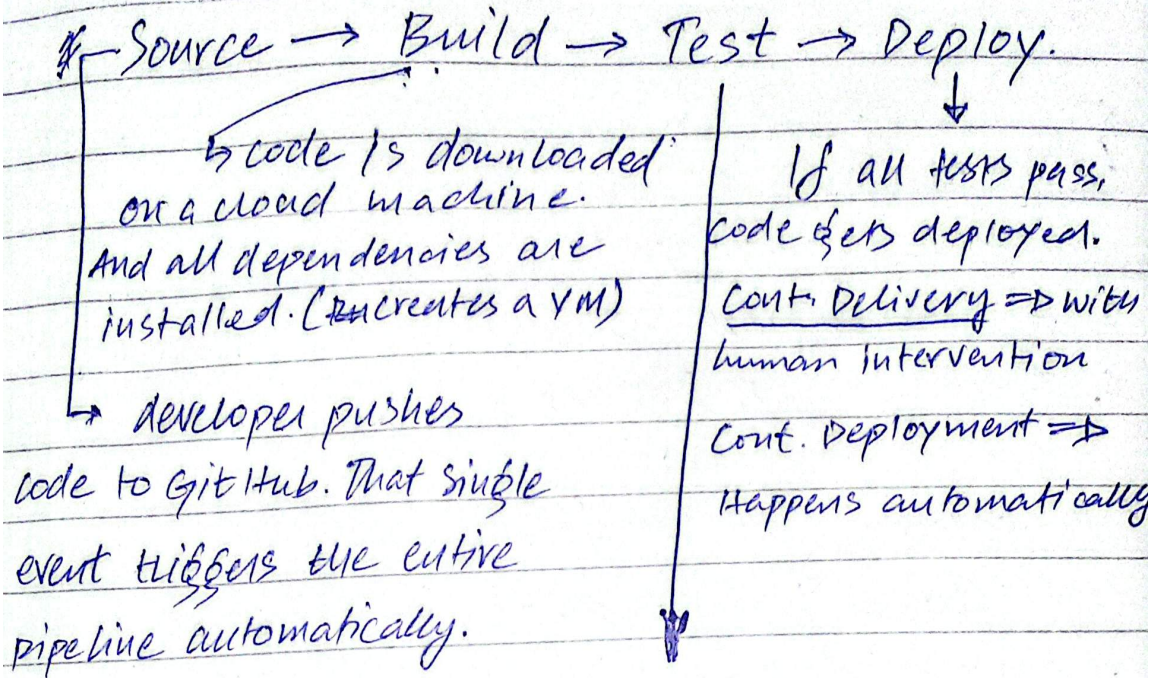 Source → Build → Test → Deploy.
↳ code is downloaded
on a cloud machine.
And all dependencies are
installed. (creates a VM)
↳ developer pushes
code to GitHub. That single
event triggers the entire
pipeline automatically.
If all tests pass,
code gets deployed.
Cont. Delivery ⇒ with
human intervention
Cont. Deployment ⇒
Happens automatically